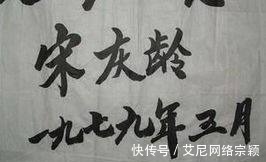 宋灰龄
一九七九年五月
快传号／艾尼网络宗颖